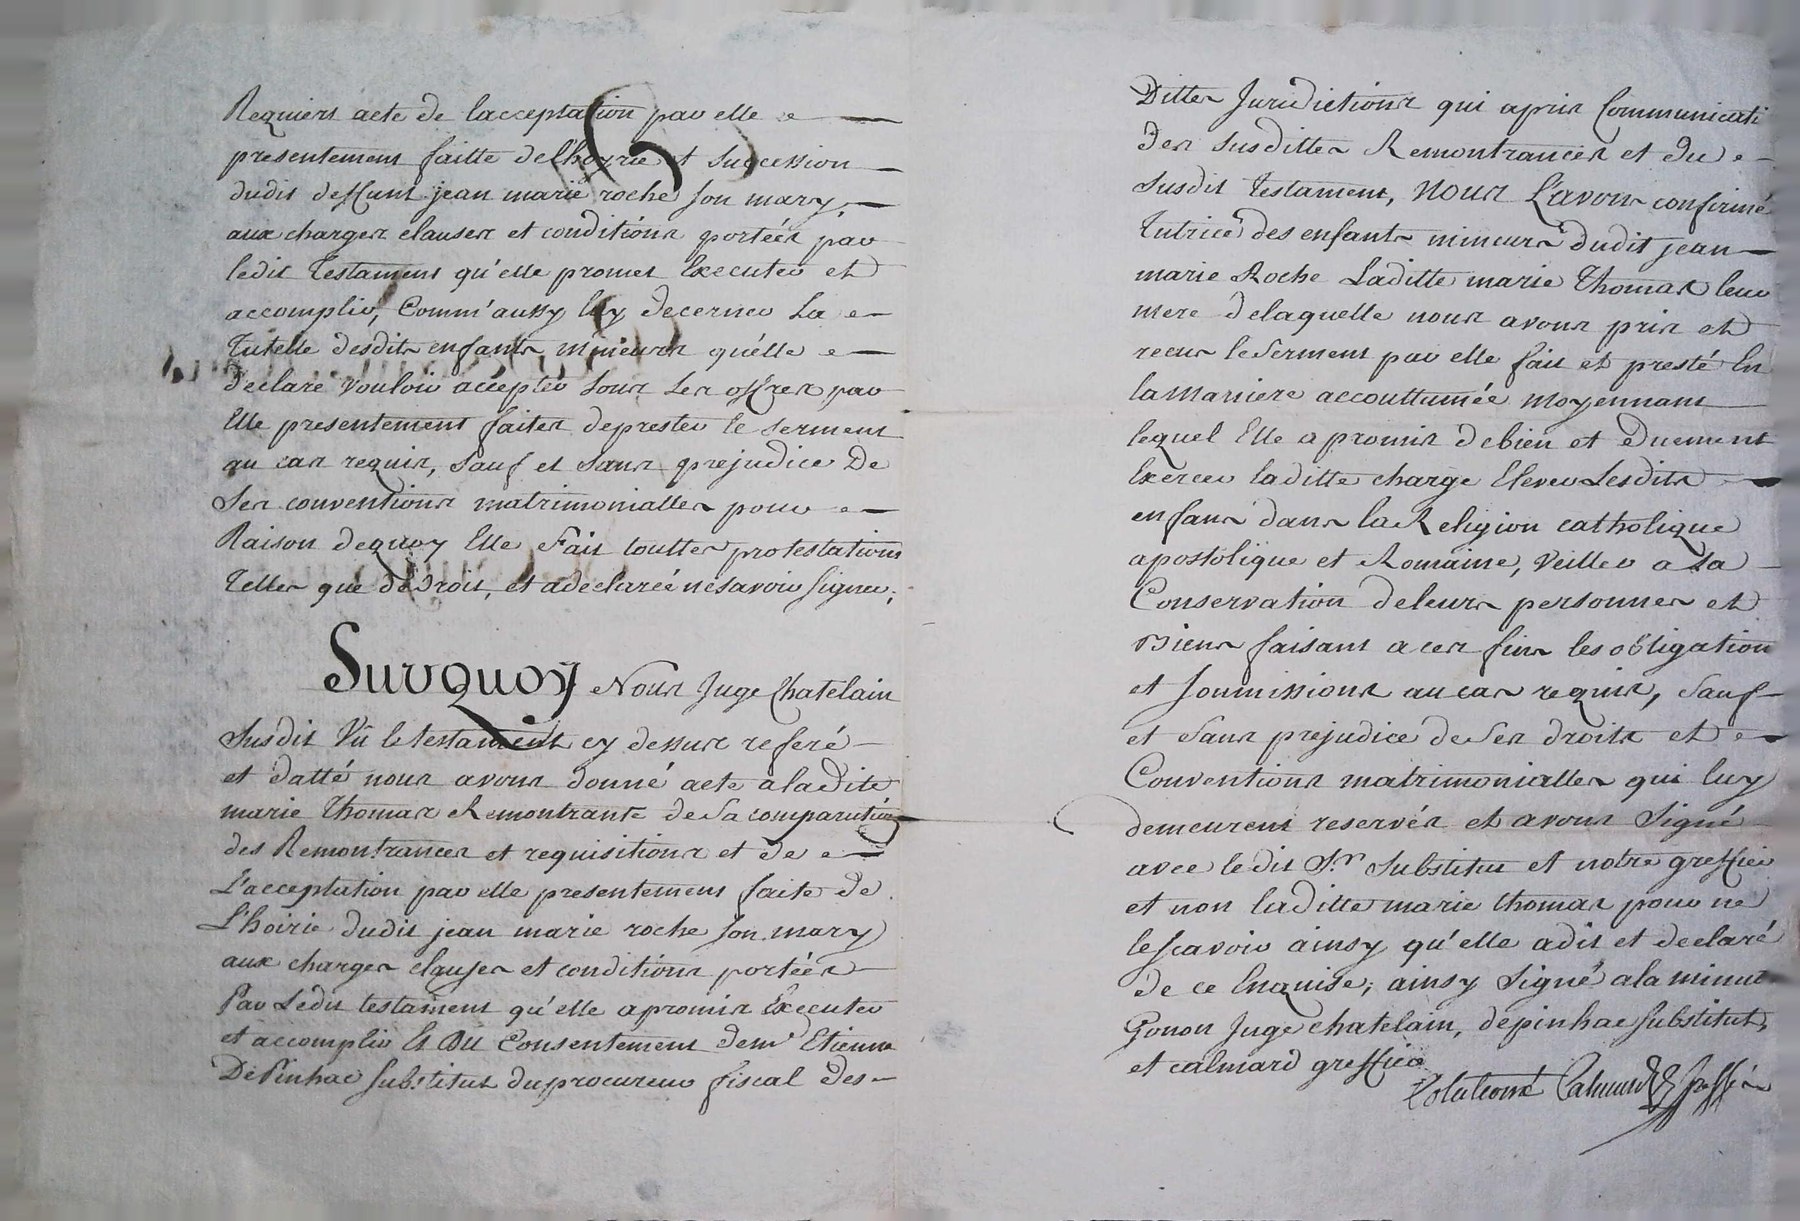 Requiert acte de lacceptation par elle
presentement faitte delhoyrie et succession
dudit deffunt jean marie roche son mary,
aux charges clauses et conditions portées par
ledit Testament qu'elle promet Executer et
accomplir, Comm'aussy luy decerner La
Tutelle desdits enfants mineurs qu'elle
declare vouloir accepter sous les offres par
Elle presentement faites deprester le serment
au cas requis, sauf et sans prejudice De
ses conventions matrimonialles pour
Raison dequoy Elle Fait touttes protestations
Telles que dedroit, et adeclaréé nesavoir signer,
Surquoy Nous Juge Chatelain
susdit Vû le testament cy dessus referé
et datté nous avons donné acte aladite
marie Thomas Remontrante de sa comparution
des Remontrances et requisitions et de
L'acceptation par elle presentement faite de
L'hoirie dudit jean marie roche son mary
aux charges clauses et conditions portées
Par Ledit testament qu'elle apromis Executer
et accomplir Et Du Consentement deme Etienne
DePinhac substitut duprocureur fiscal des
Dittes Juridictions qui apris Communicati
des susdittes Remontrances et du
susdit Testament, Nous L'avons confirmé
Tutrice des enfants mineurs dudit jean
marie Roche Laditte marie Thomas leur
mere delaquelle nous avons pris et
recus leserment par elle fait et presté En
lamaniere accouttumée moyennant
lequel Elle apromis debien et duement
Exercer laditte charge Elever Lesdits
enfans dans laReligion catholique
apostolique et Romaine, Veiller a La
Conservation deleurs personnes et
Biens faisant aces fins les obligation
et soumissions aucas requis, sauf
et sans prejudice deses droits et
Conventions matrimonialles qui luy
demeurent reservés et avons signé
avec ledit Sr. Substitut et notre greffier
et non laditte marie thomas pour ne
lescavoir ainsy qu'elle adit et declaré
de ce Enquise; ainsy signé alaminut
Gonon Juge chatelain, depinhac substitut,
et calmard greffier
Collationné Calmard greffier